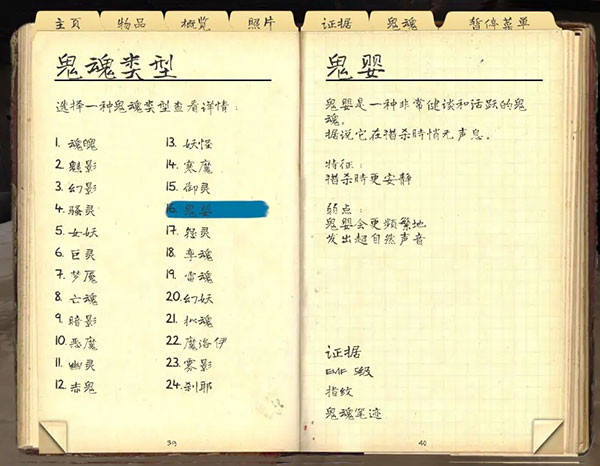 主页 物品 概览 照片 证据 鬼魂 暂停菜单
鬼魂类型
选择一种鬼魂类型查看详情：
1. 魂魄
2. 魅影
3. 幻影
4. 骚灵
5. 女妖
6. 巨灵
7. 梦魇
8. 亡魂
9. 暗影
10. 恶魔
11. 幽灵
12. 赤鬼
13. 妖怪
14. 寒魔
15. 御灵
16. 鬼婴
17. 怨灵
18. 孪魂
19. 雷魂
20. 幻妖
21. 拟魂
22. 魔洛伊
23. 雾影
24. 刹耶
39
鬼婴
鬼婴是一种非常健谈和活跃的鬼
魂。
据说它在猎杀时悄无声息。
特征：
猎杀時更安静
弱点：
鬼婴会更频繁地
发出超自然声音
证据
EMF 5级
指纹
鬼魂笔迹
40